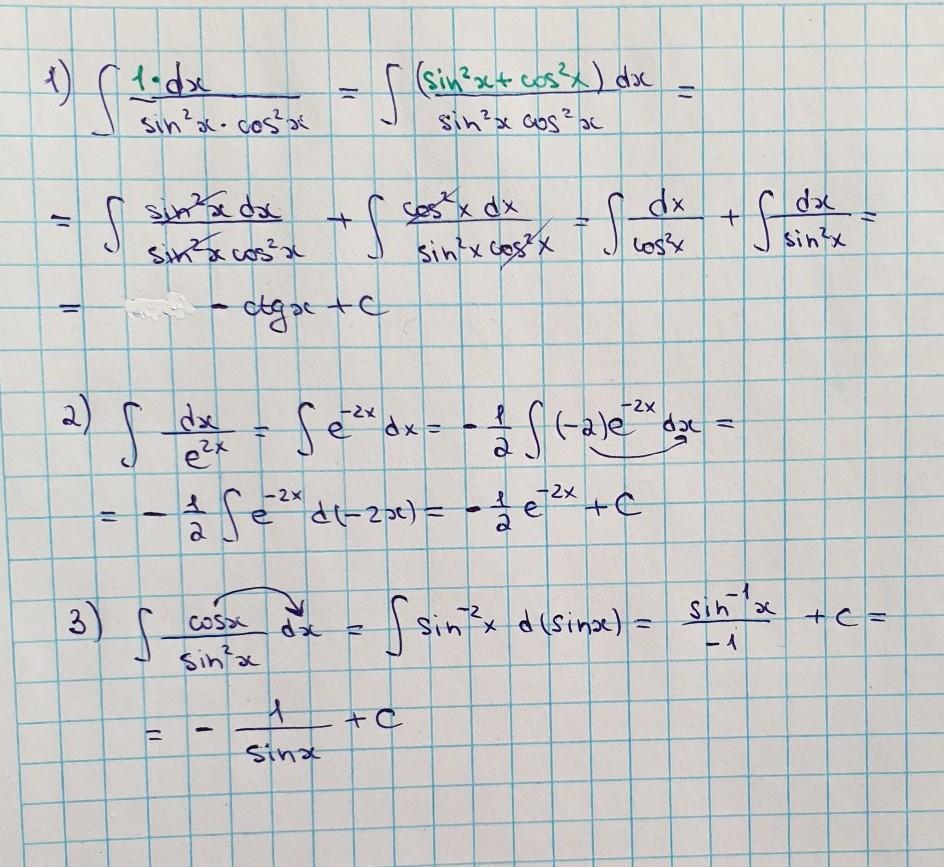 1) ∫ 1·dx / (sin²x · cos²x) = ∫ (sin²x + cos²x) dx / (sin²x cos²x) =
= ∫ sin²x dx / (sin²x cos²x) + ∫ cos²x dx / (sin²x cos²x) = ∫ dx / cos²x + ∫ dx / sin²x =
= - ctgx + C
2) ∫ dx / e^(2x) = ∫ e^(-2x) dx = - 1/2 ∫ (-2)e^(-2x) dx =
= - 1/2 ∫ e^(-2x) d(-2x) = - 1/2 e^(-2x) + C
3) ∫ cosx / sin²x dx = ∫ sin⁻²x d(sinx) = sin⁻¹x / -1 + C =
= - 1 / sinx + C